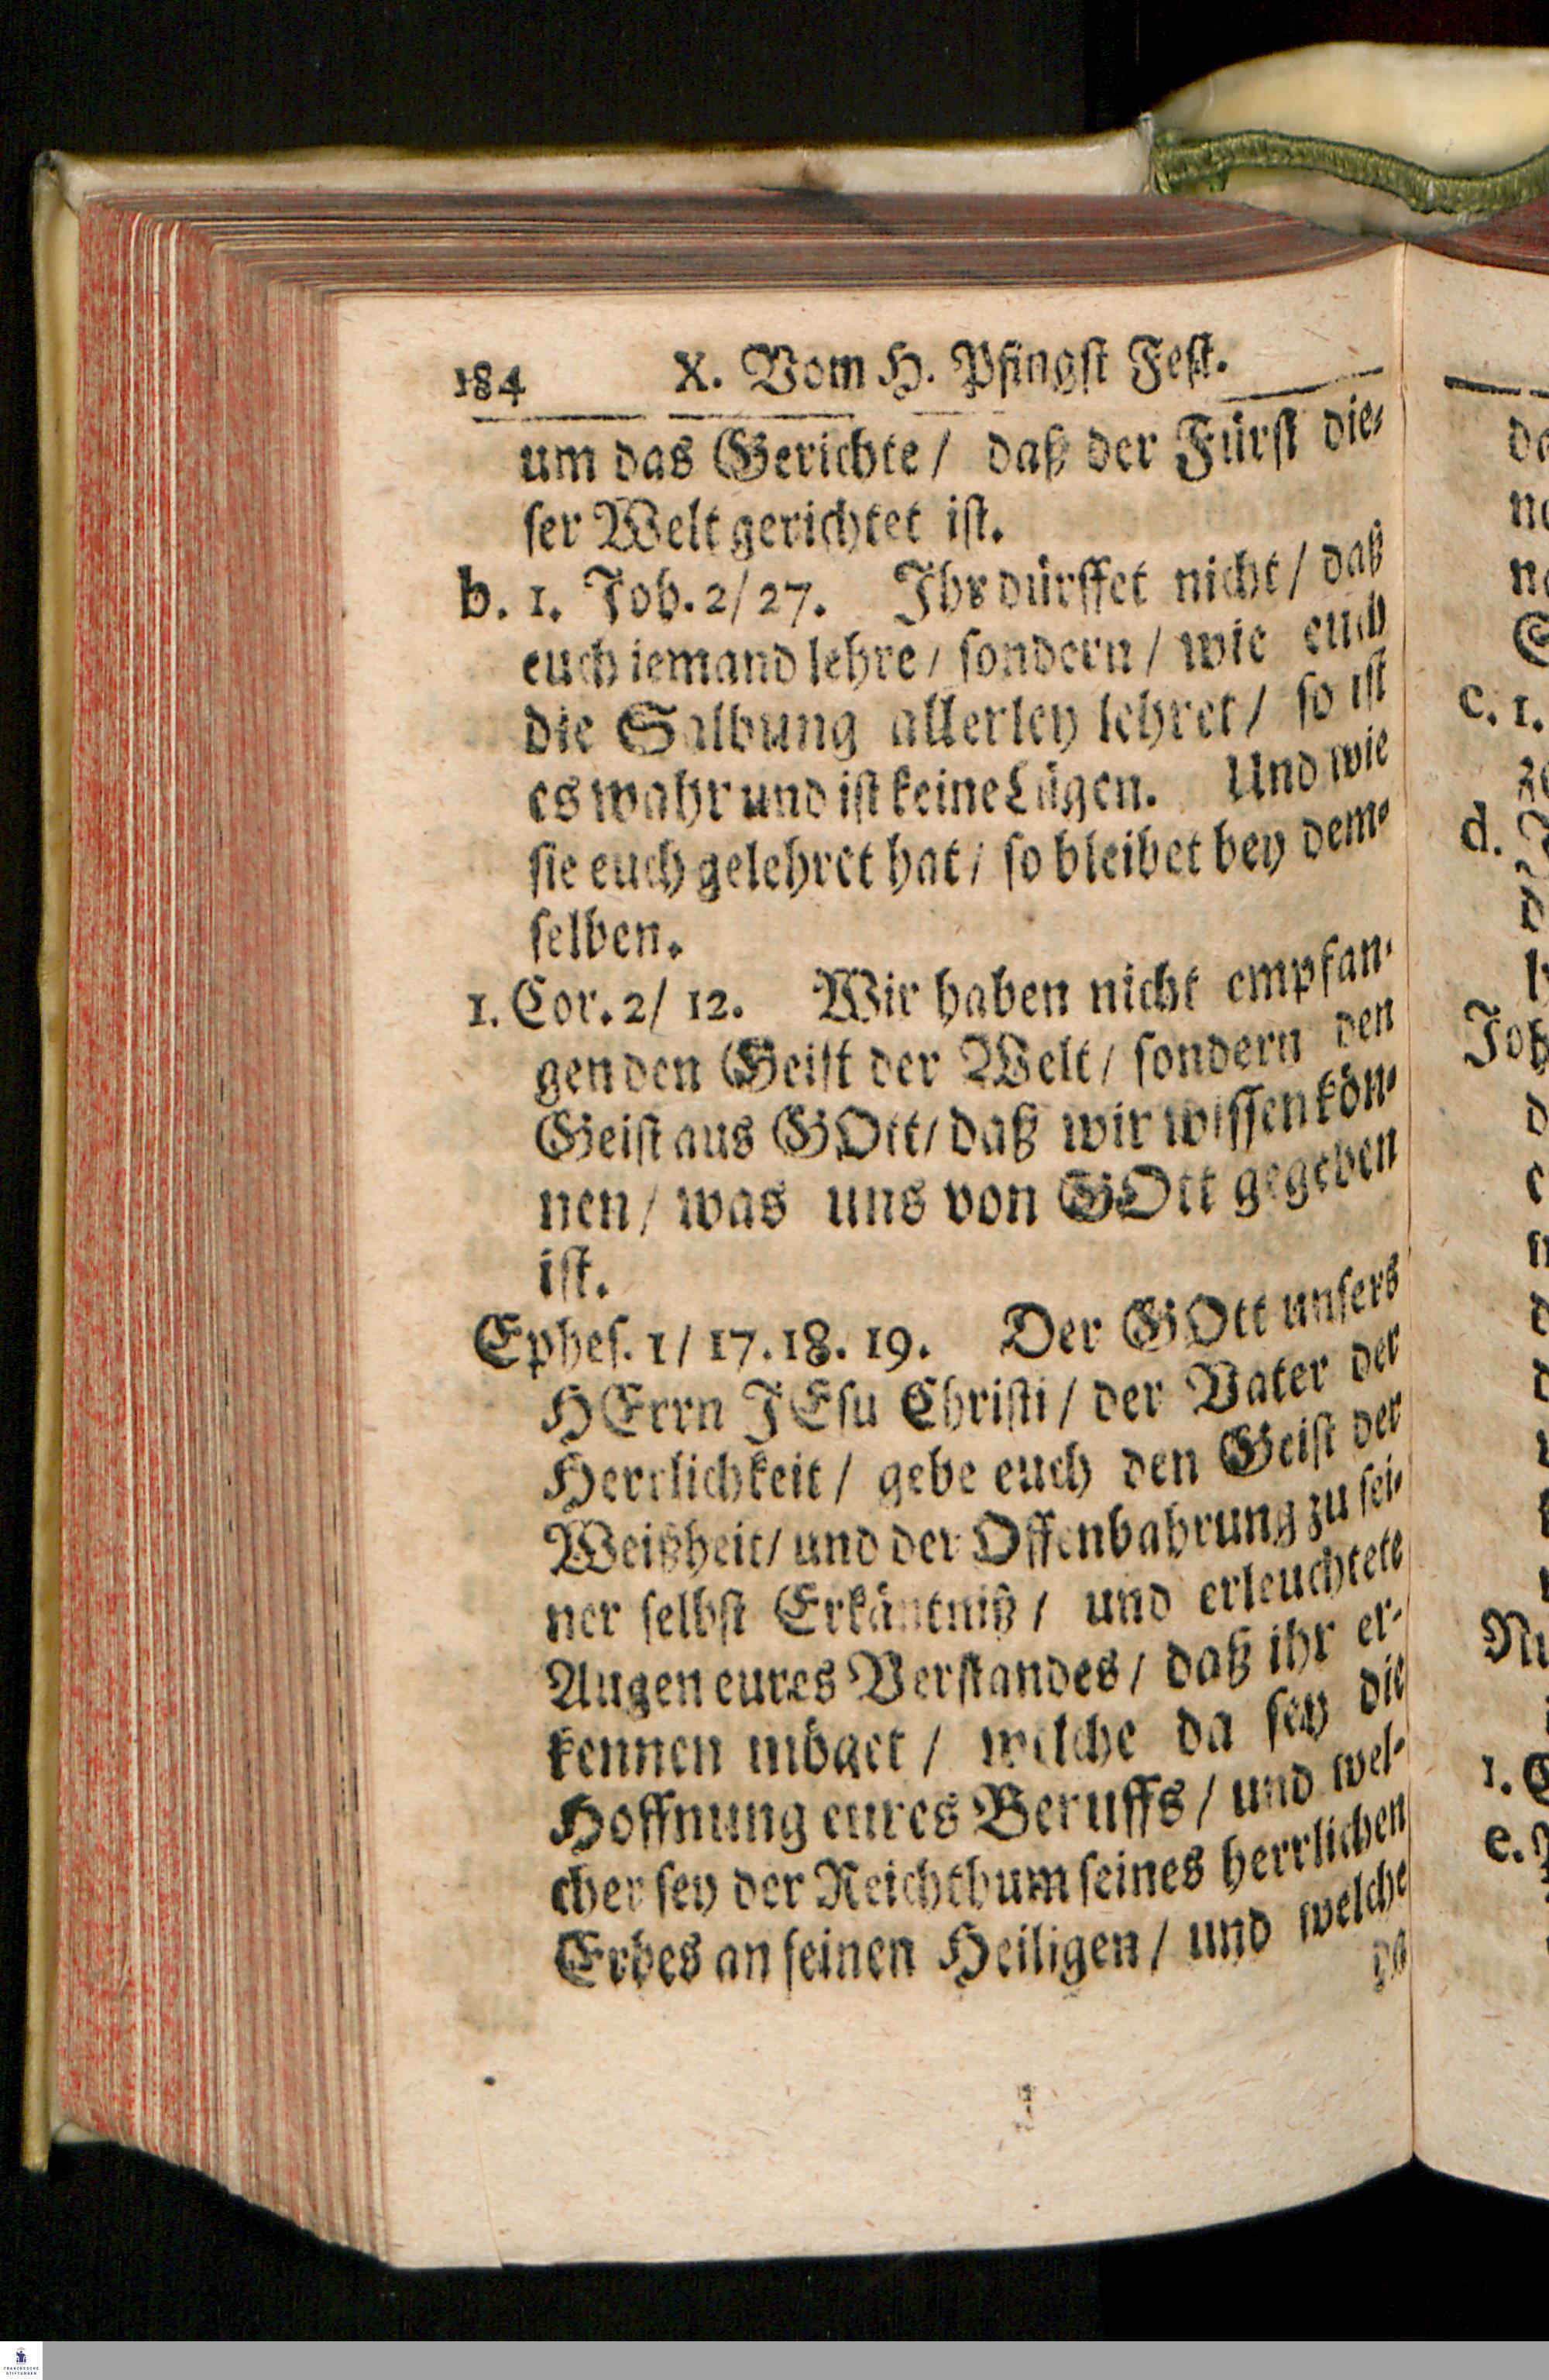 184 X. Vom H. Pfingst Fest.
um das Gerichte / daß der Fürst die-
ser Welt gerichtet ist.
b. 1. Joh. 2/27. Ihr dürffet nicht / daß
euch iemand lehre / sondern / wie euch
die Salbung allerley lehret / so ist
es wahr und ist keine Lügen. Und wie
sie euch gelehret hat / so bleibet bey dem-
selben.
1. Cor. 2/ 12. Wir haben nicht empfan-
gen den Geist der Welt / sondern den
Geist aus GOtt / daß wir wissen kön-
nen / was uns von GOtt gegeben
ist.
Ephes. 1/ 17. 18. 19. Der GOtt unsers
HErrn JEsu Christi / der Vater der
Herrlichkeit / gebe euch den Geist der
Weißheit / und der Offenbahrung zu sei-
ner selbst Erkäntniß / und erleuchtete
Augen eures Verstandes / daß ihr er-
kennen möget / welche da sey die
Hoffnung eures Beruffs / und wel-
cher sey der Reichthum seines herrlichen
Erbes an seinen Heiligen / und welche
da
c. 1.
d.
Joh
1.
e.
FRANCKESCHE
STIFTUNGEN